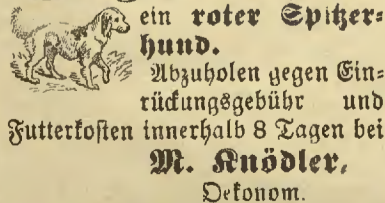 ein roter Spitzer-
hund.
Abzuholen gegen Ein-
rückungsgebühr und
Futterkosten innerhalb 8 Tagen bei
M. Knödler,
Oekonom.